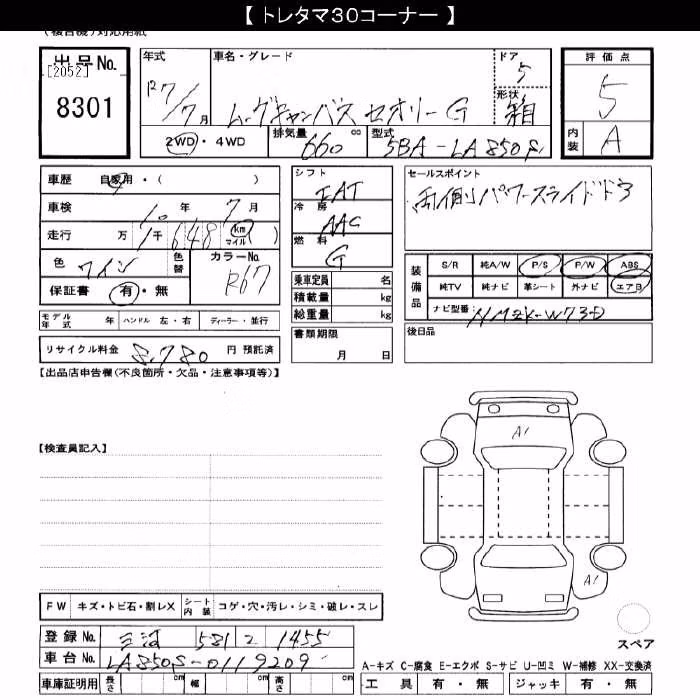 【 トレタマ30コーナー 】
(複合機)対応用紙
出品No.
[2052]
8301
年式
R7/7月
車名・グレード
ムーヴキャンバス セオリーG
ドア
5
形状
箱
評価点
5
内装
A
2WD・4WD
排気量
660 cc
型式
5BA-LA850S
車歴 自家用・( )
車検 10年 7月
走行 万 1千 648 (km マイル)
色 ワイン
色替
カラーNo.
R67
保証書 有・無
モデル年式 年 ハンドル 左・右 ディーラー・並行
リサイクル料金 8,780 円 預託済
シフト
IAT
冷房
AAC
燃料
G
乗車定員 名
積載量 kg
総重量 kg
書類期限
月 日
セールスポイント
両側パワースライドドア
装備品
S/R 純A/W P/S P/W ABS
純TV 純ナビ 革シート 外ナビ エアB
ナビ型番 NMZK-W73D
後日品
【出品店申告欄(不良箇所・欠品・注意事項等)】
【検査員記入】
A1
A1
スペア
FW キズ・トビ石・割レX シート内装 コゲ・穴・汚レ・シミ・破レ・スレ
登録No. 三河 581 2 1455
車台No. LA850S-0119209
車庫証明用 長さ cm 幅 cm 高さ cm
A-キズ C-腐食 E-エクボ S-サビ U-凹ミ W-補修 XX-交換済
工具 有・無 ジャッキ 有・無